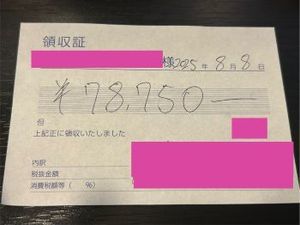 領収証
様 2025年8月8日
¥78,750-
但
上記正に領収いたしました
内訳
税抜金額
消費税額等（ %）